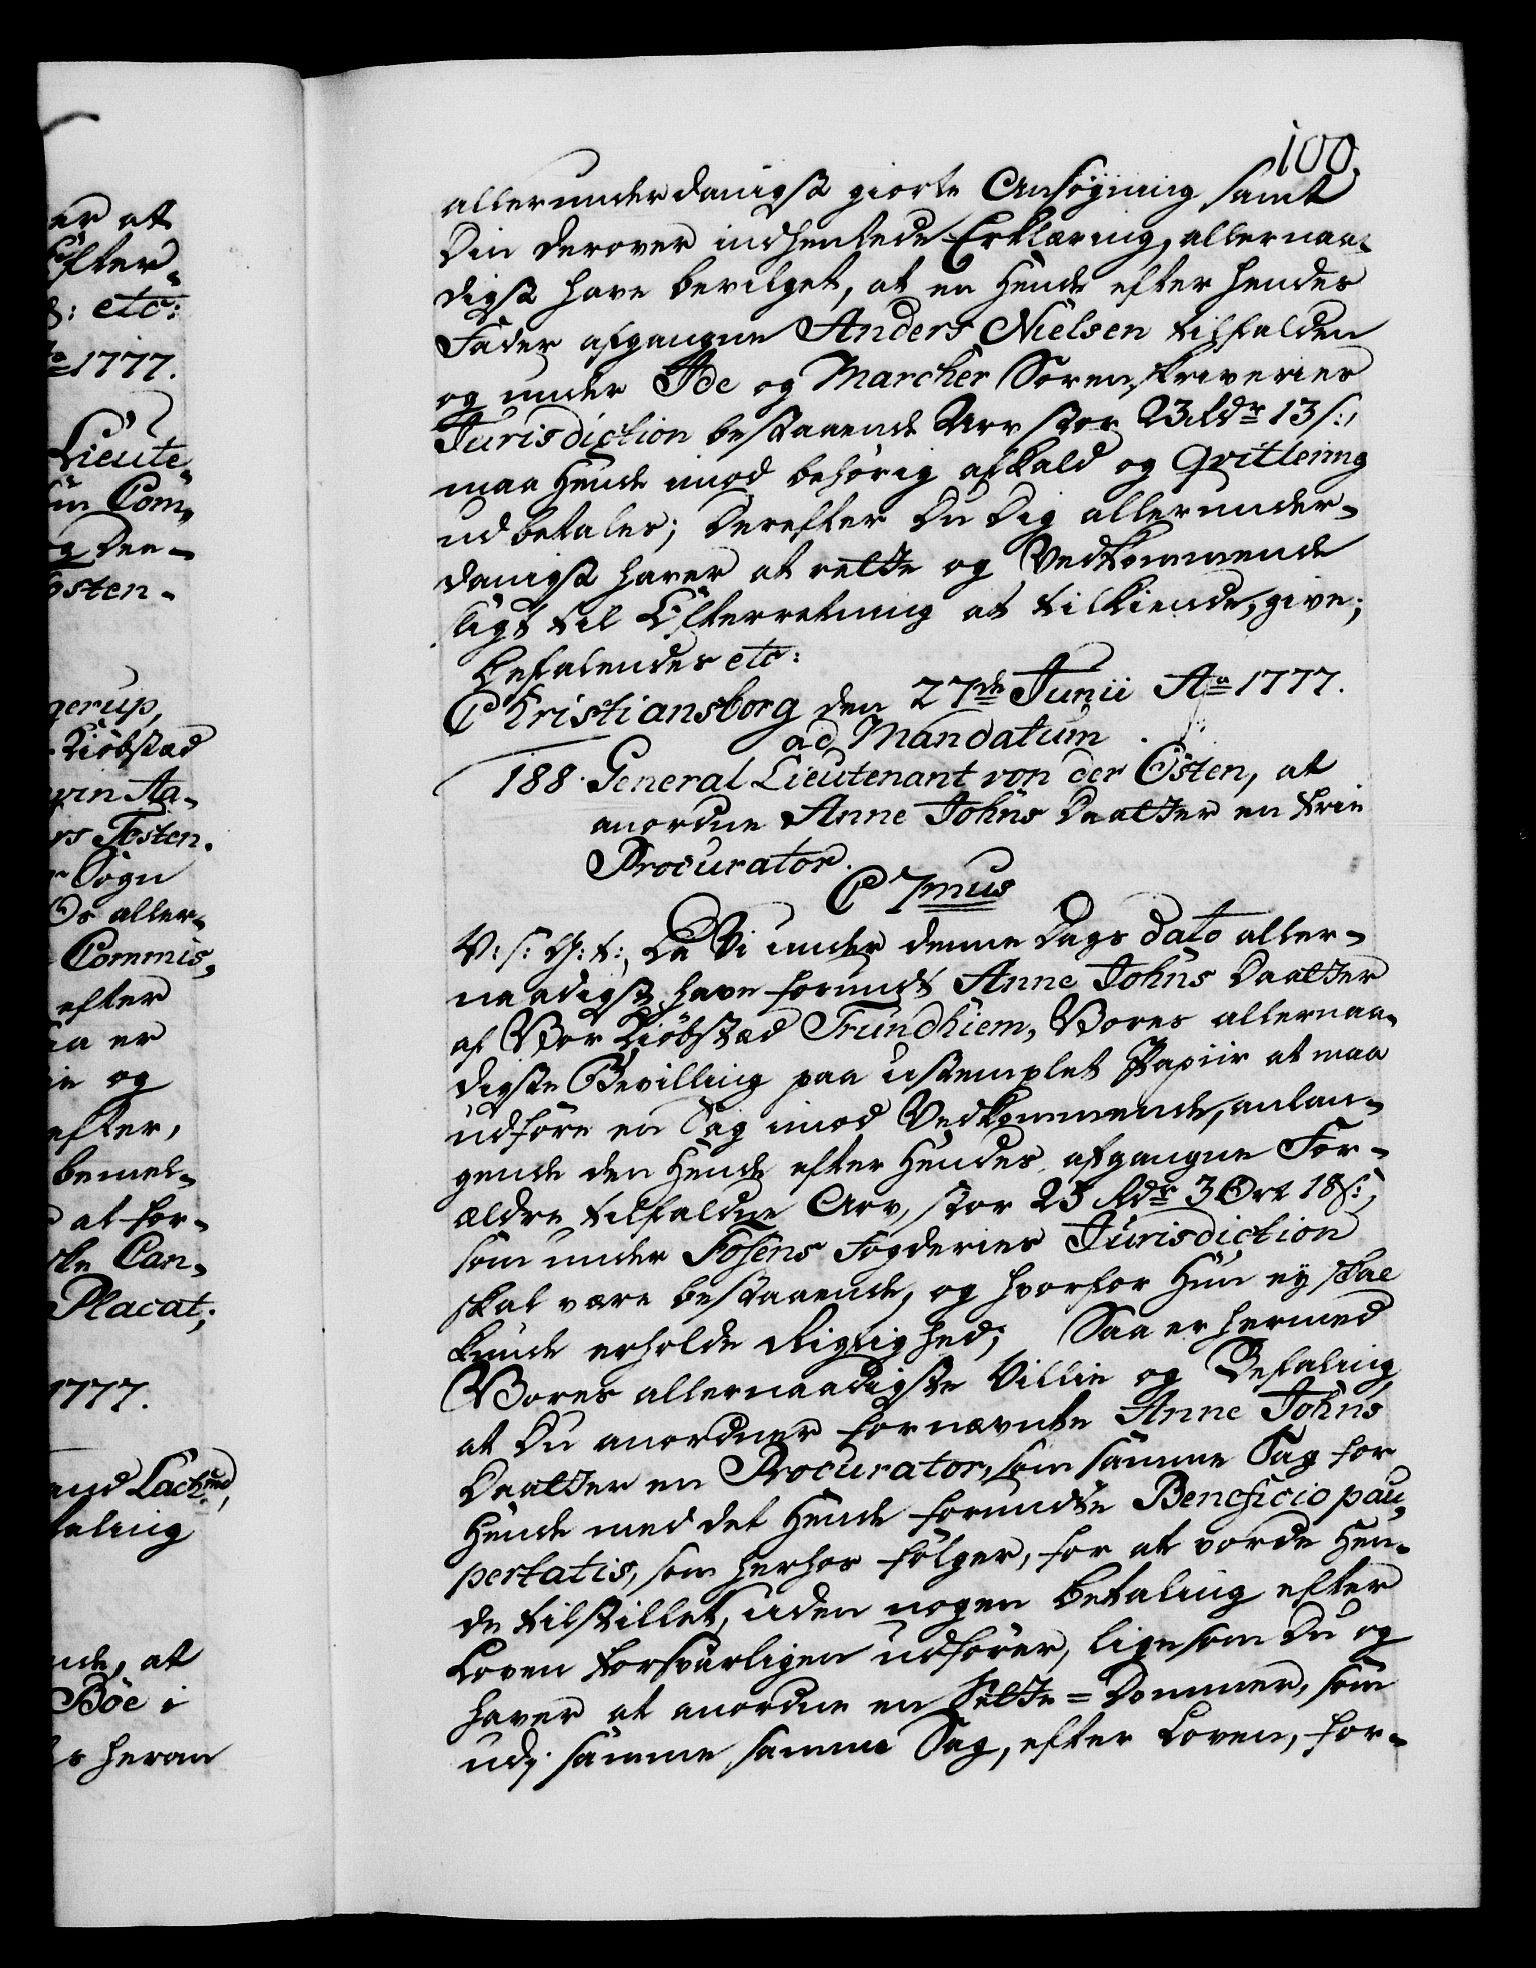 er at
Efter-
8: etc:
Ao 1777.
Lieute-
Com-
og Den-
Osten-
gerup,
Kiöbstæd
Aa-
Tosten.
Sogn
Os aller-
Commis,
efter
er
og
efter,
bemel-
at for-
Can-
Placat;
1777.
faling
nde, at
Böe i
heran
100.
allerunderdanigst giorte Ansögning samt
Din derover indhentede Erklæring, allernaa-
digst have bevilget, at en Hende efter hendes
Fader afgangne Anders Nielsen tilfalden
og under Ide og Marcker Sorenskriveries
Jurisdiction bestaaende Arv stor 23 Rdr 13 s:,
maa Hende imod behörig afkald og Qvittering
udbetales; Derefter Du Dig allerunder-
danigst haver at rette og Vedkommende
sligt til Efterretning at tilkiende give;
Befalendes etc:
Christiansborg den 27de Junii Ao 1777.
ad Mandatum
188. General Lieutenant von der Osten, at
anordne Anne Johns Daatter en frie
Procurator.
C 7mus
V: s: G: t:, Da Vi under denne Dags dato aller-
naadigst have forundt Anne Johns Daatter
af Vor Kiöbstæd Trundhiem, Vores allernaa-
digste Bevilling paa ustemplet Papiir at maa
udföre en Sag imod Vedkommende, anlan-
gende den Hende efter Hendes afgangne For-
ældre tilfaldne Arv, stor 25 Rdr 3 Ort 18 s:,
som under Fosens Fogderies Jurisdiction
skal være bestaaende, og hvorfor Hun ey skal
kunde erholde Rigtighed; Saa er hermed
Vores allernaadigste Villie og Befaling,
at Du anordner fornævnte Anne Johns
Daatter en Procurator, som samme Sag for
Hende med det Hende forundte Beneficio pau-
pertatis, som herhos fölger, for at vorde Hen-
de tilstillet, uden nogen Betaling efter
Loven forsvarligen udförer, ligesom Du og
haver at anordne en Sette=Dommer, som
udj samme samme Sag, efter Loven, for-